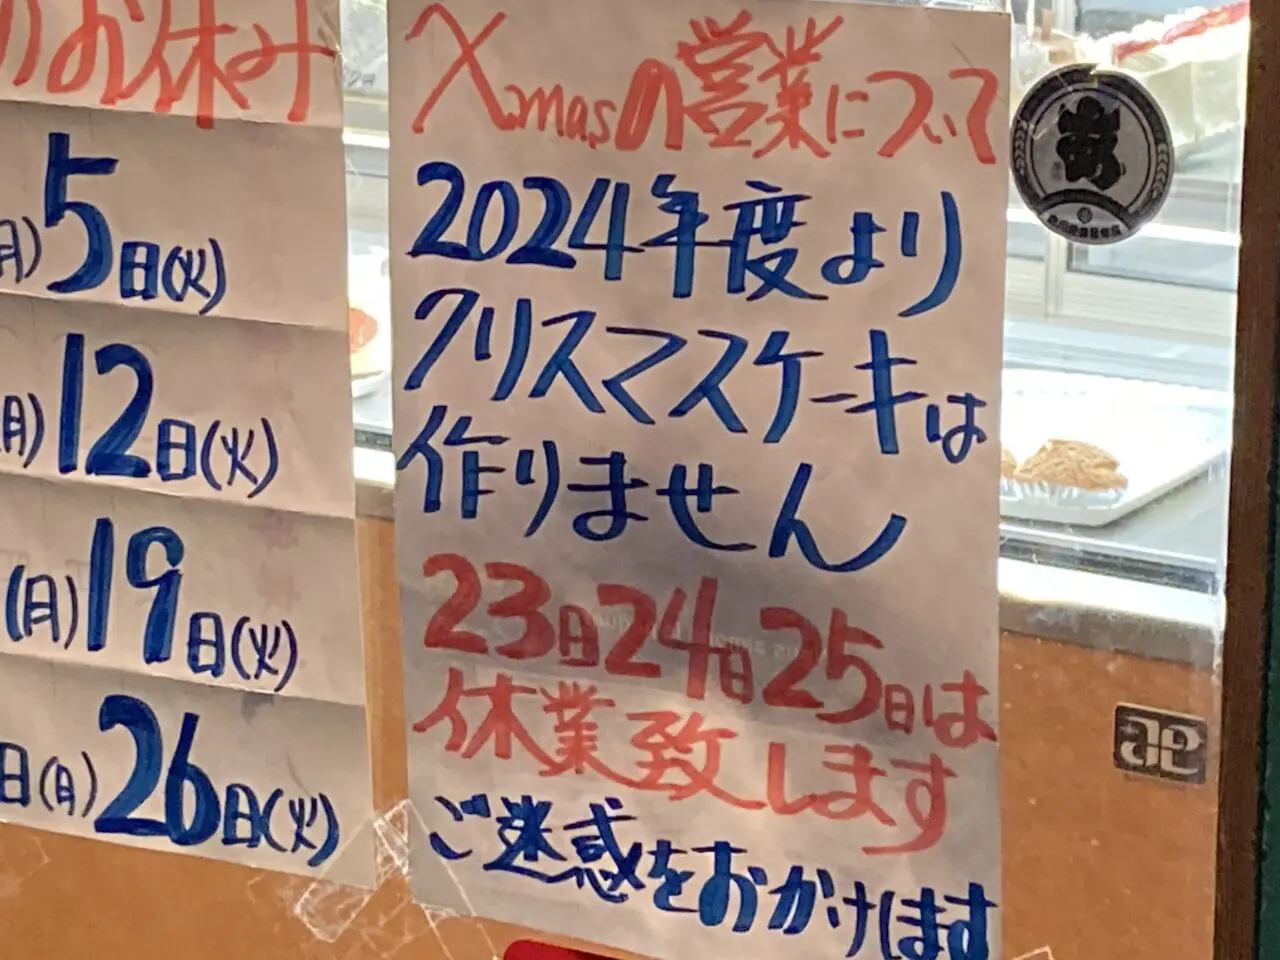 のお休み
月)5日(火)
月)12日(火)
(月)19日(火)
日(月)26日(火)
Xmasの営業について
2024年度より
クリスマスケーキは
作りません
23日24日25日は
休業致します
ご迷惑をおかけします
ae